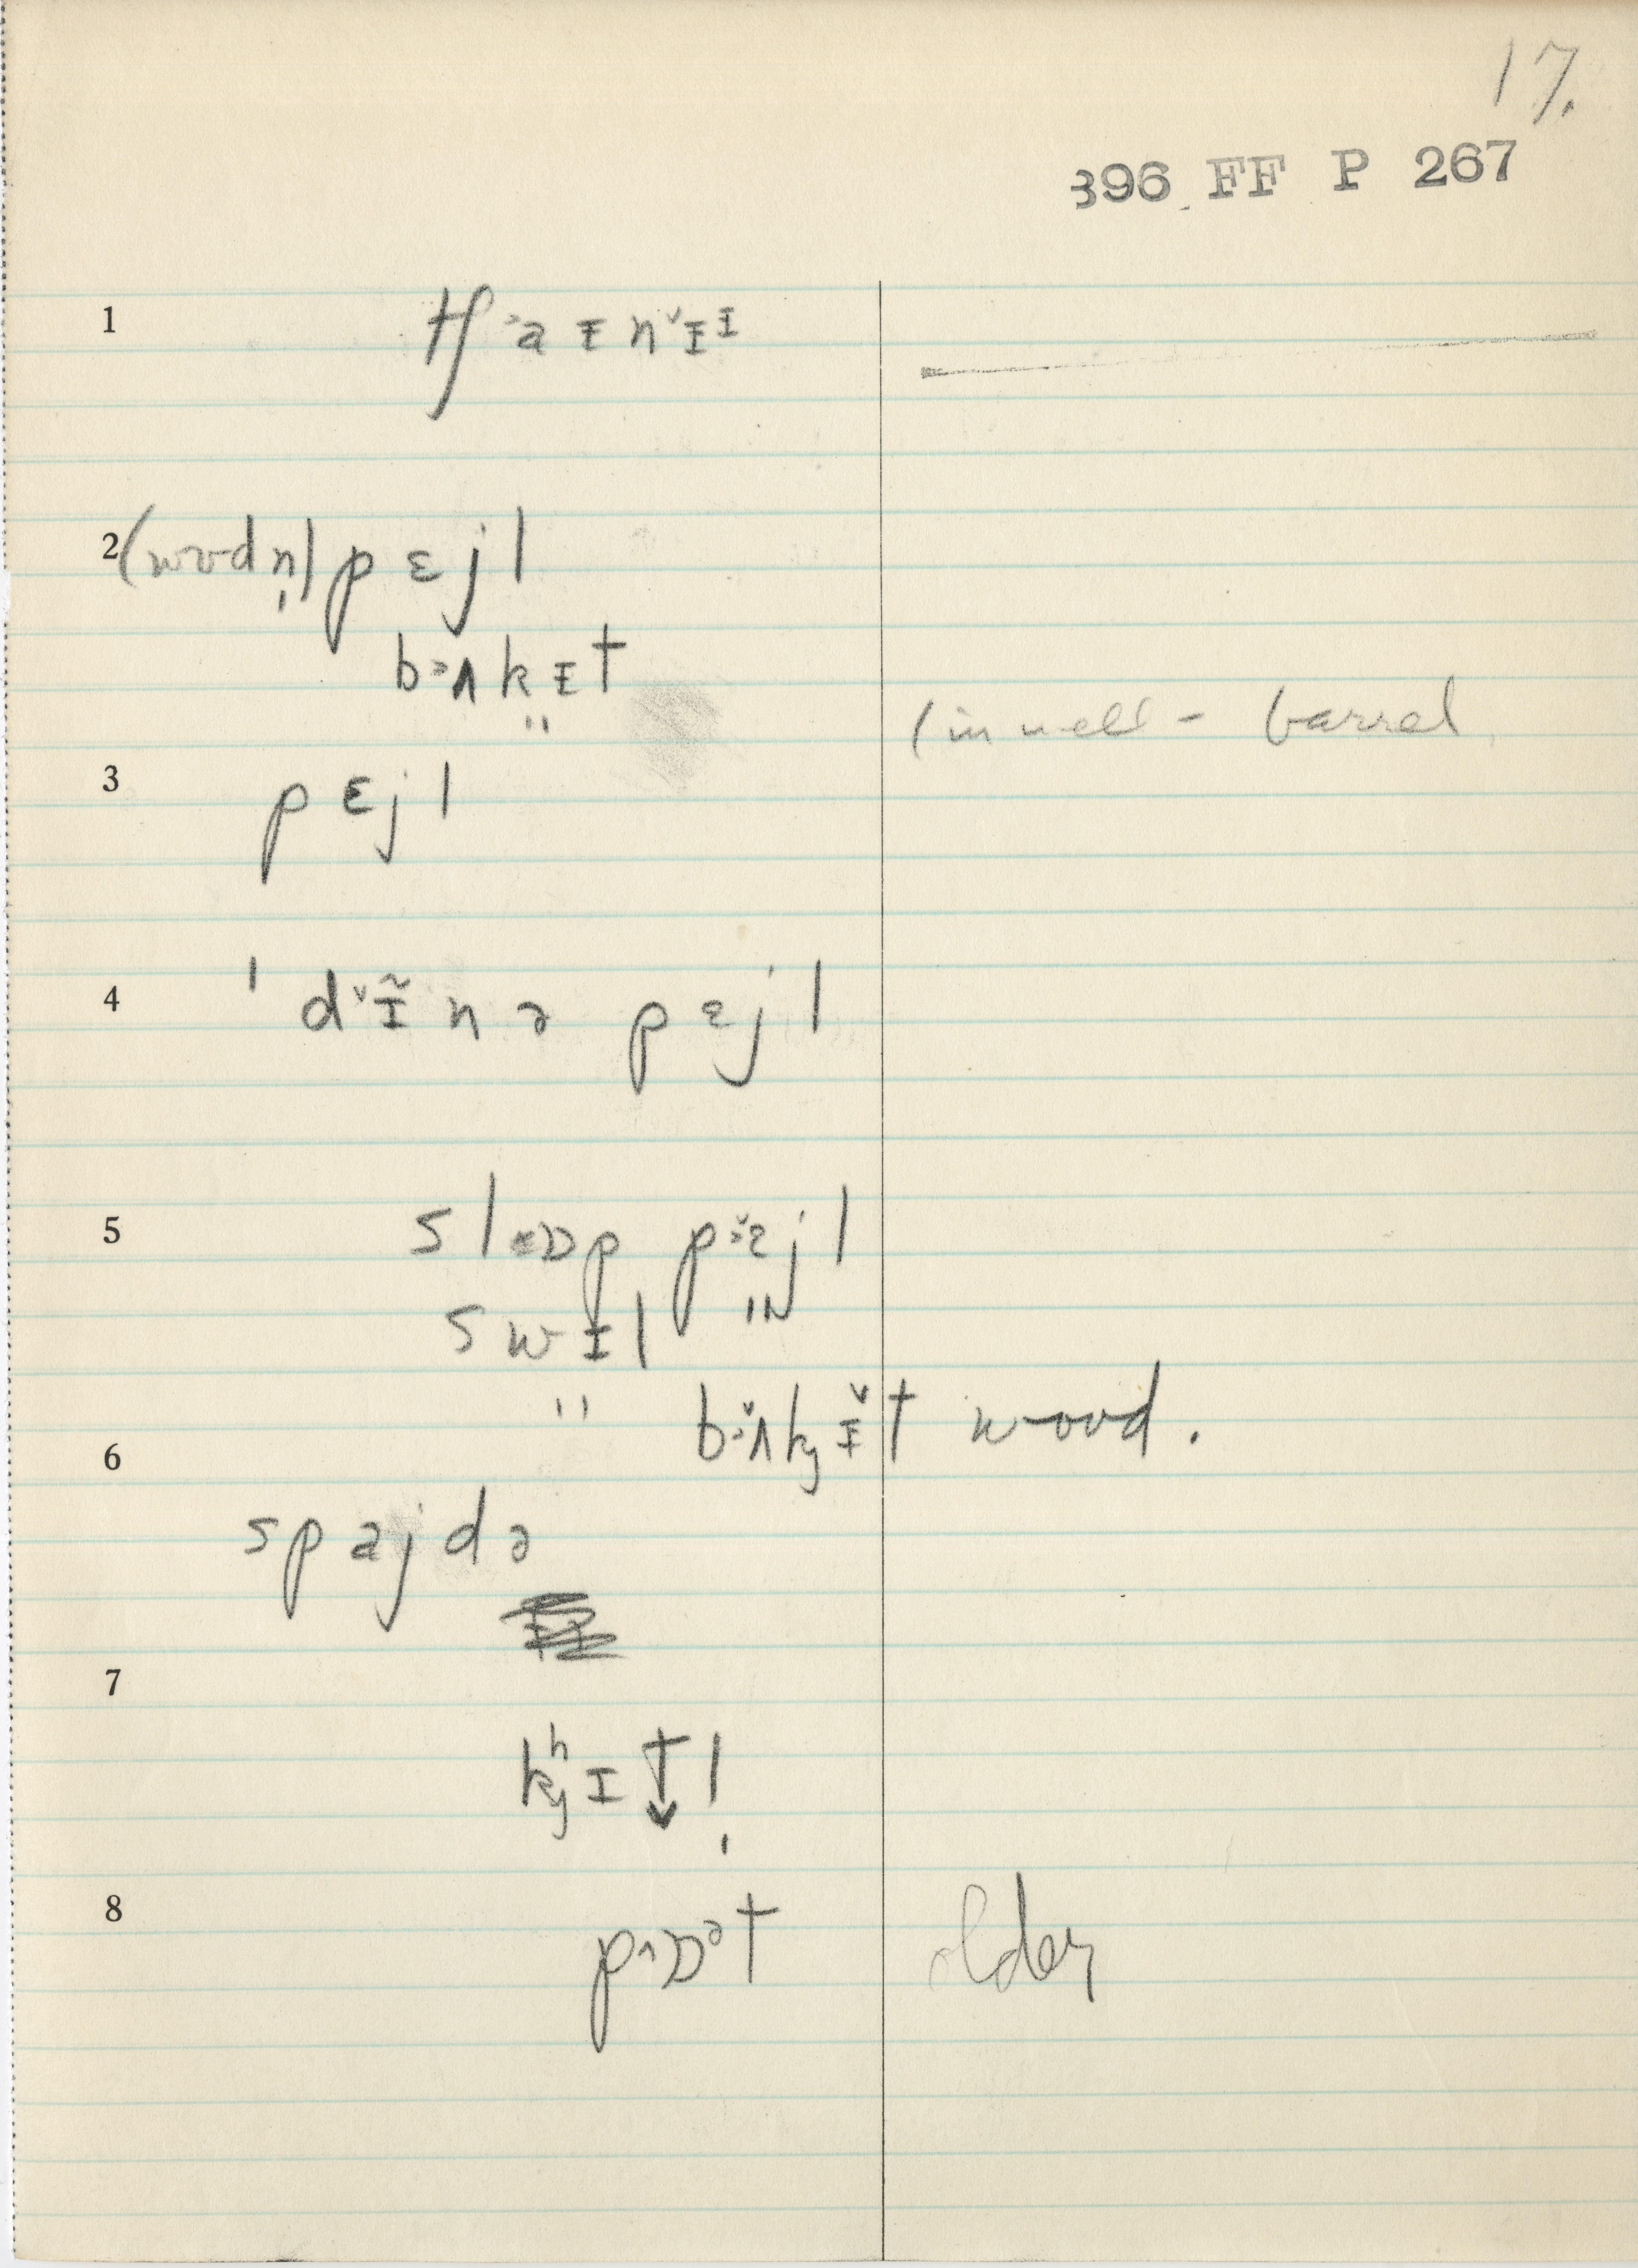 17.
396 FF P 267
1 tʃ˃a ɪ n˅ɪɪ
2 (wʊdn̩) p ɛ j l
b˃ʌ k ɪ t
" (in well - barrel
3 p ɛ j l
4 ˈ d˅ɪ̃ n ə p ɛ j l
5 s l ɒ p p ɛ j l
s w ɪ l "
" b ʌ k ɪ t wood.
6
s p a j d ə
7
kʰ ɪ t l̩
8 p ɒᵊ t older